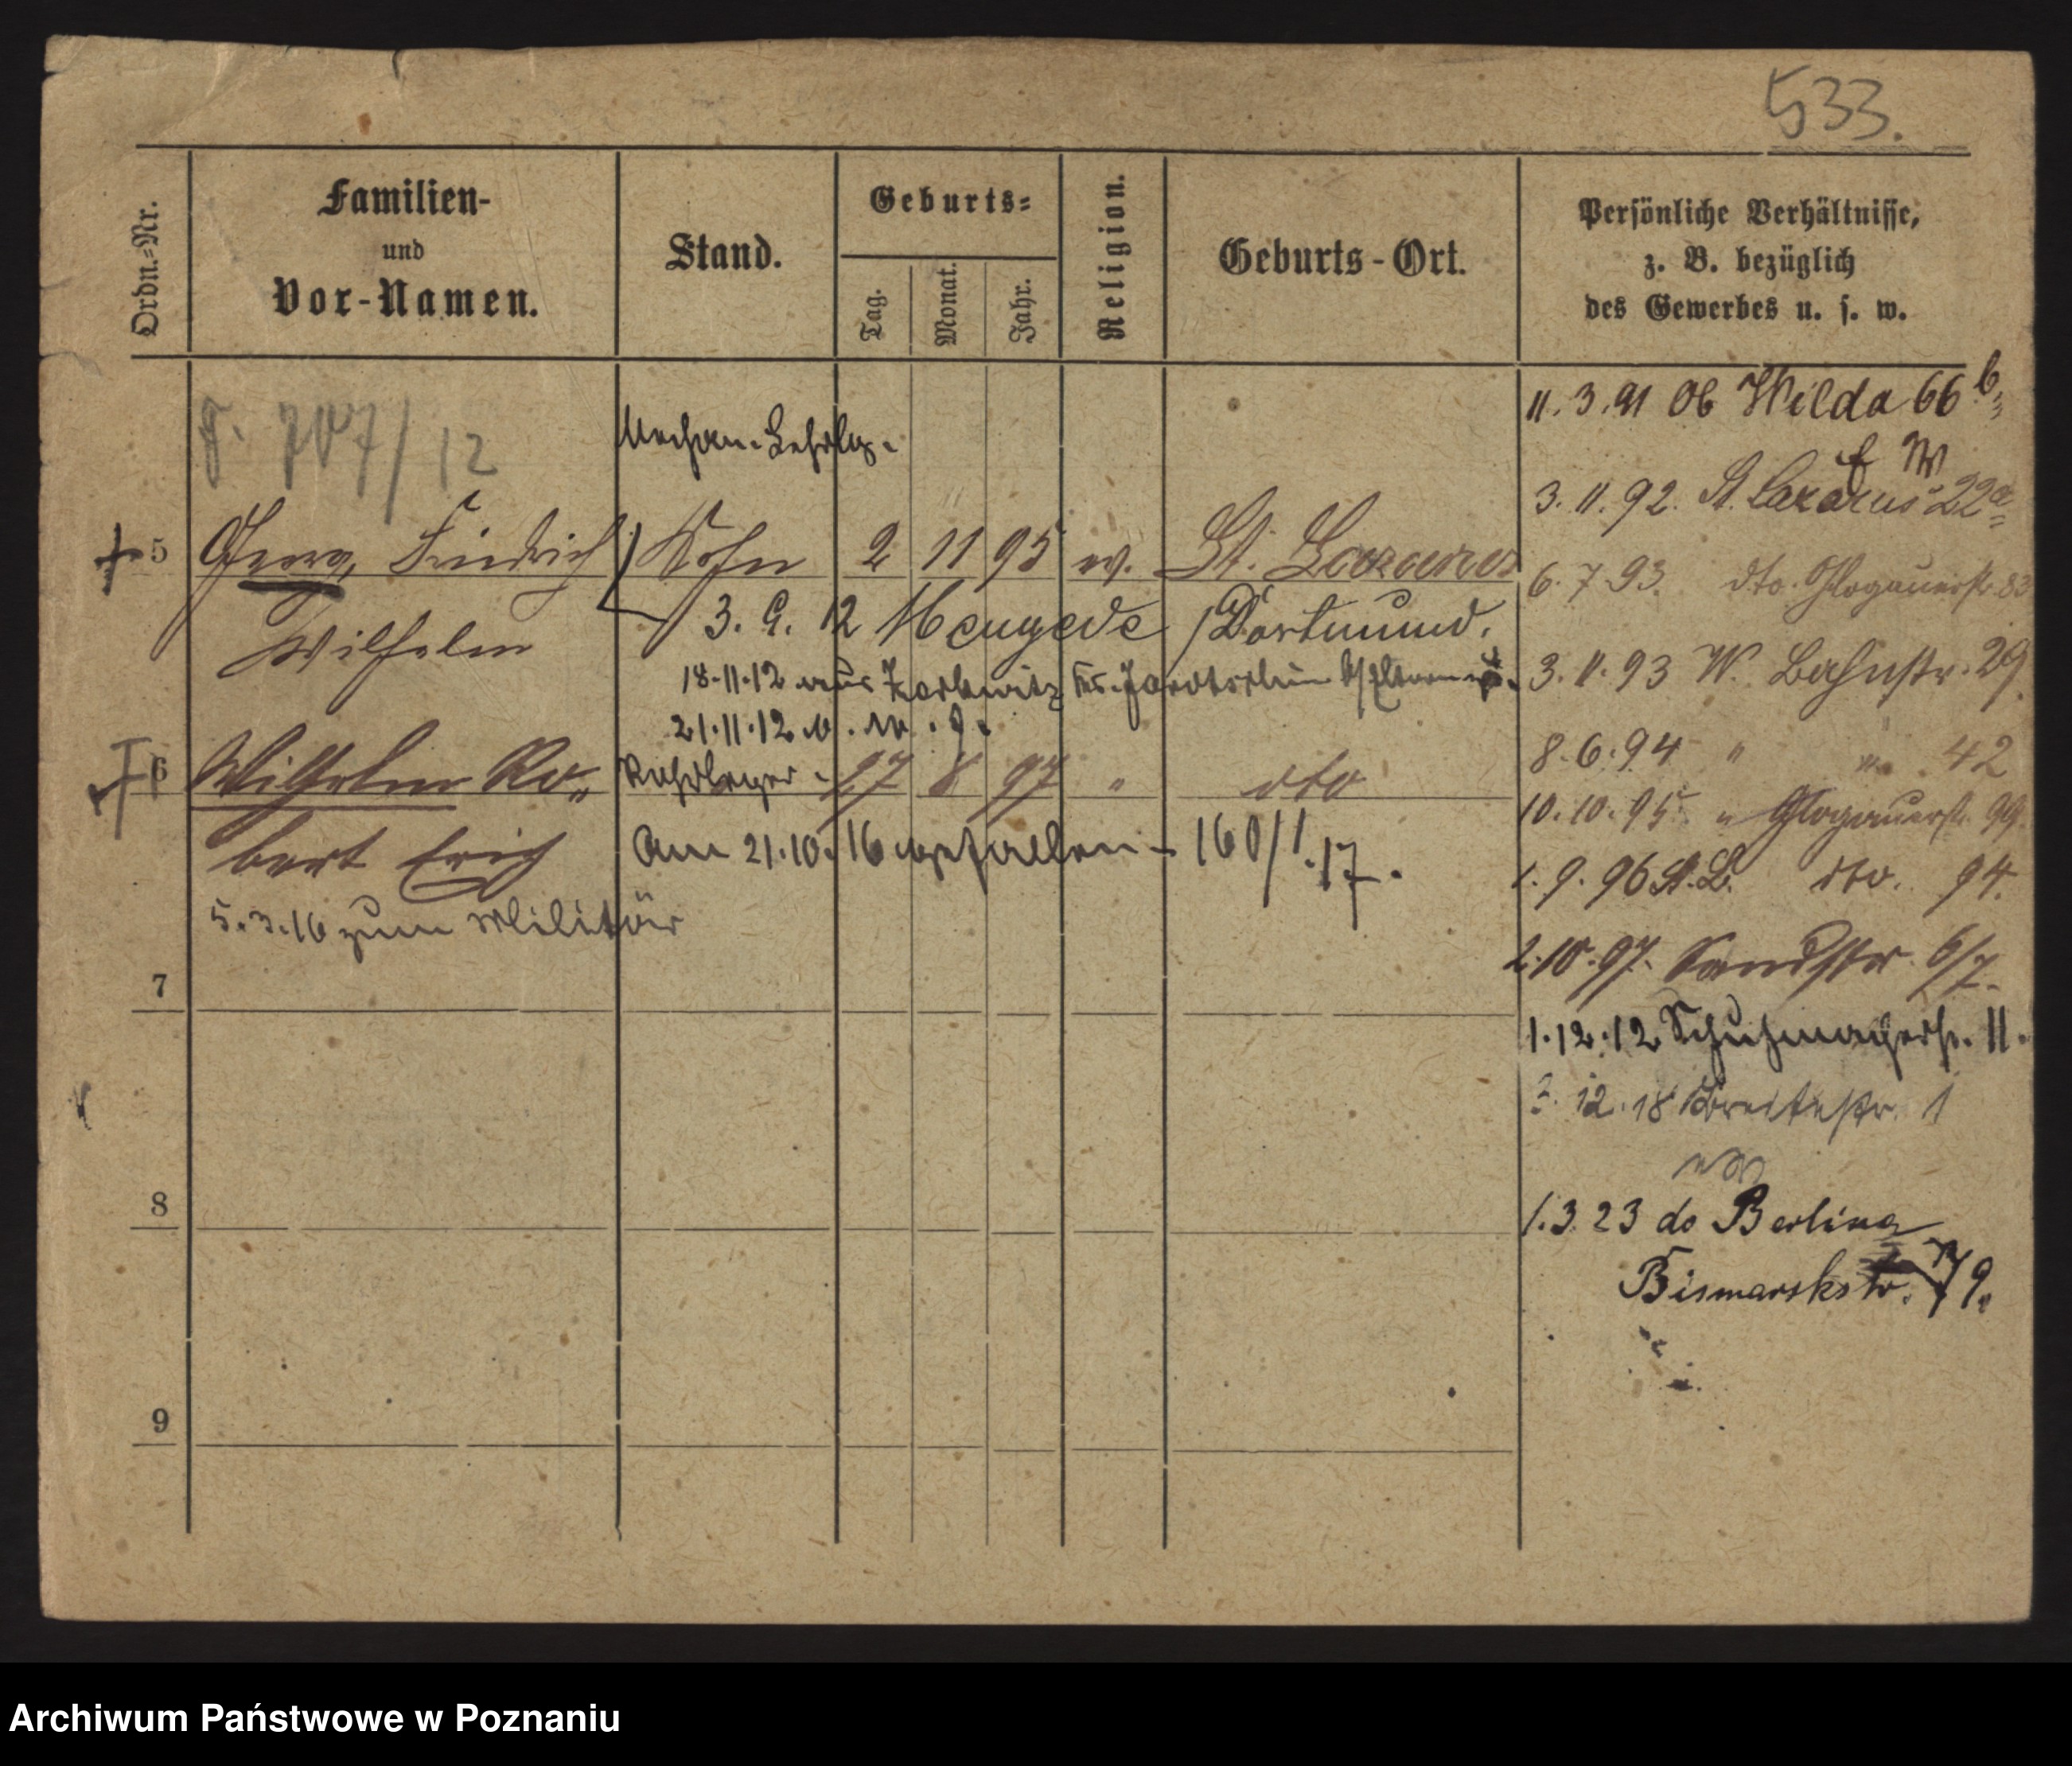 533.
Ordn.-Nr.
Familien-
und
Vor-Namen.
Stand.
Geburts-
Tag.
Monat.
Jahr.
Religion.
Geburts-Ort.
Persönliche Verhältnisse,
z. B. bezüglich
des Gewerbes u. s. w.
707/12
Mechan. Lehrlg.
5 Georg, Friedrich Sohn 2 11 95 ev. St. Lazarus
Wilhelm
3. 9. 12 Mengede /Dortmund.
18.11.12 aus
21.11.12
6 Wilhelm Ro„ Rohrleger 27 8 97 " dto
bert Erich
am 21.10.16 gefallen - 160/1.17.
5.3.16 zum Militär
7
8
9
11.3.91 Ob Wilda 66 b
3.11.92. St. Lazarus 22a
6.7.93. dto. Glogauerstr. 83
3.11.93 W. Bahnstr. 29
8.6.94 " " 42
10.10.95 " Glogauerstr. 99.
1.9.96 St. L. dto. 94.
2.10.97. Sandstr. 6/7.
1.12.12 Schuhmacherstr. 11.
12.18 Breitestr. 1
1.3.23 do Berlina
Bismarskstr. 79.
Archiwum Państwowe w Poznaniu